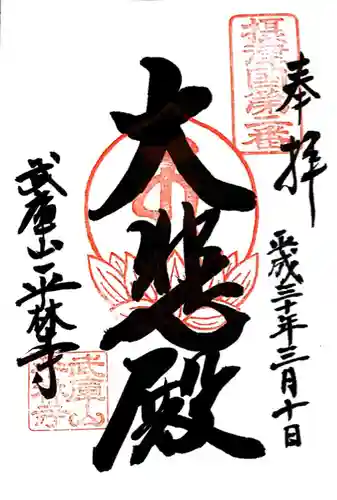 奉拝
摂津国第二番
平成三十年三月十日
大悲殿
武庫山平林寺
武庫山平林寺